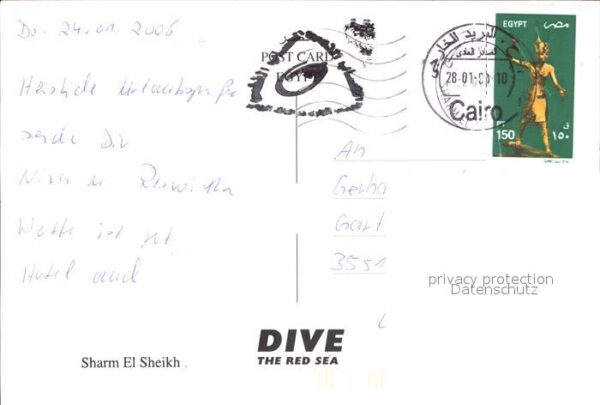 Do. 24.01.2006
Herzliche Urlaubsgrüße
sende Dir
Wetter ist gut
Hotel auch
POST CARD
EGYPT
البريد الخارجي
28-01-06-10
Cairo
EGYPT مصر
150 ١٥٠
An
Gerha
Gart
3551
privacy protection
Datenschutz
DIVE
THE RED SEA
Sharm El Sheikh